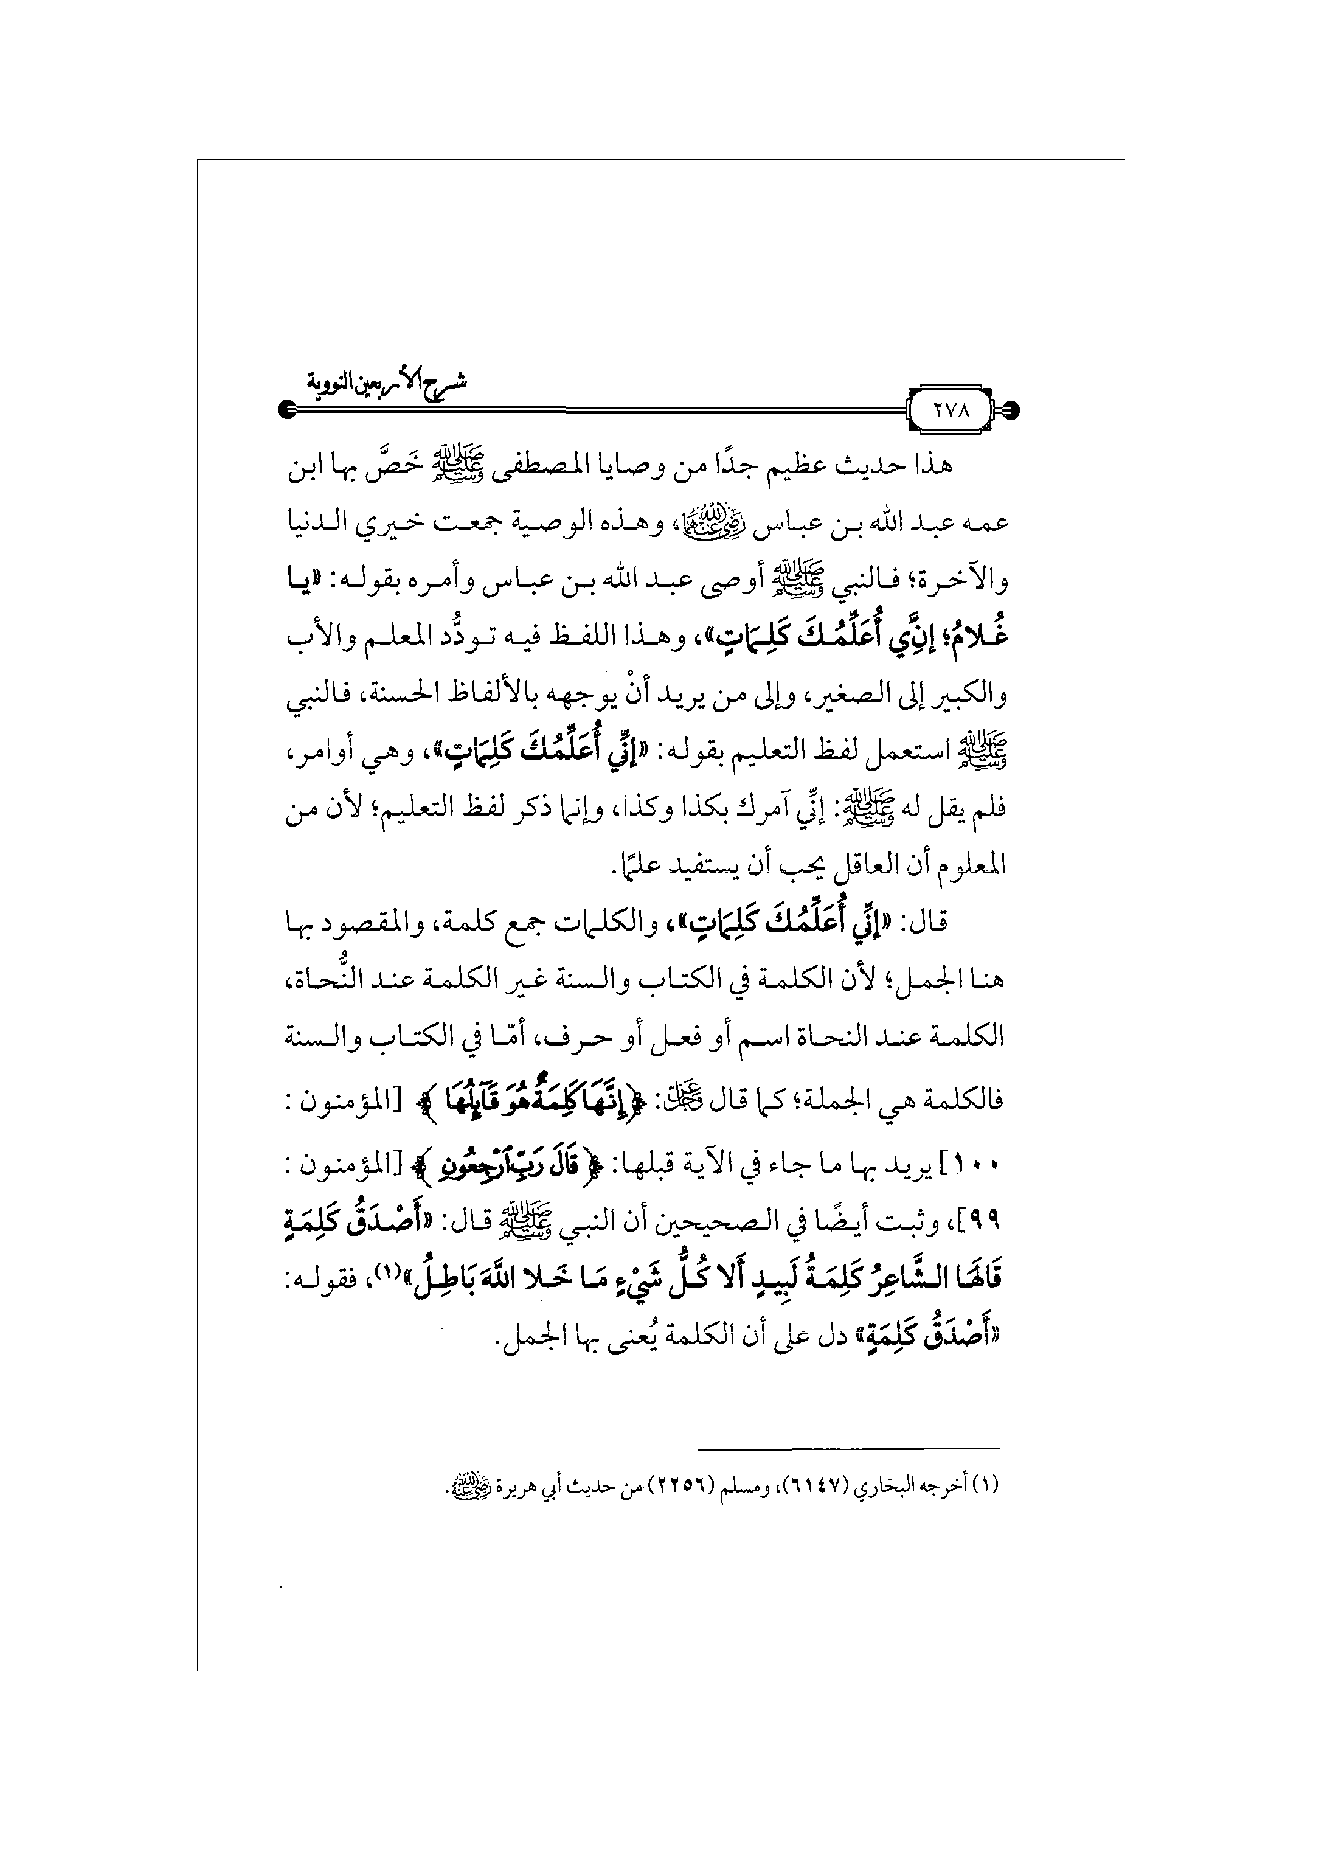 شرح الأربعين النووية
٢٧٨
هذا حديث عظيم جدًا من وصايا المصطفى ﷺ خَصَّ بها ابن
عمه عبد الله بن عباس رضي الله عنهما، وهذه الوصية جمعت خيري الدنيا
والآخرة؛ فالنبي ﷺ أوصى عبد الله بن عباس وأمره بقوله: «يا
غُلامُ؛ إنَّي أُعَلِّمُكَ كَلِمَاتٍ»، وهذا اللفظ فيه تودُّد المعلم والأب
والكبير إلى الصغير، وإلى من يريد أنْ يوجهه بالألفاظ الحسنة، فالنبي
ﷺ استعمل لفظ التعليم بقوله: «إنِّي أُعَلِّمُكَ كَلِمَاتٍ»، وهي أوامر،
فلم يقل له ﷺ: إنِّي آمرك بكذا وكذا، وإنما ذكر لفظ التعليم؛ لأن من
المعلوم أن العاقل يحب أن يستفيد علمًا.
قال: «إنِّي أُعَلِّمُكَ كَلِمَاتٍ»، والكلمات جمع كلمة، والمقصود بها
هنا الجمل؛ لأن الكلمة في الكتاب والسنة غير الكلمة عند النُّحاة،
الكلمة عند النحاة اسم أو فعل أو حرف، أمّا في الكتاب والسنة
فالكلمة هي الجملة؛ كما قال عز وجل: ﴿إِنَّهَا كَلِمَةٌ هُوَ قَآئِلُهَا﴾ [المؤمنون :
١٠٠] يريد بها ما جاء في الآية قبلها: ﴿قَالَ رَبِّ ٱرْجِعُونِ﴾ [المؤمنون :
٩٩]، وثبت أيضًا في الصحيحين أن النبي ﷺ قال: «أَصْدَقُ كَلِمَةٍ
قَالَهَا الشَّاعِرُ كَلِمَةُ لَبِيدٍ أَلا كُلُّ شَيْءٍ مَا خَلا اللَّهَ بَاطِلُ»(١)، فقوله:
«أَصْدَقُ كَلِمَةٍ» دل على أن الكلمة يُعنى بها الجمل.
(١) أخرجه البخاري (٦١٤٧)، ومسلم (٢٢٥٦) من حديث أبي هريرة رضي الله عنه.